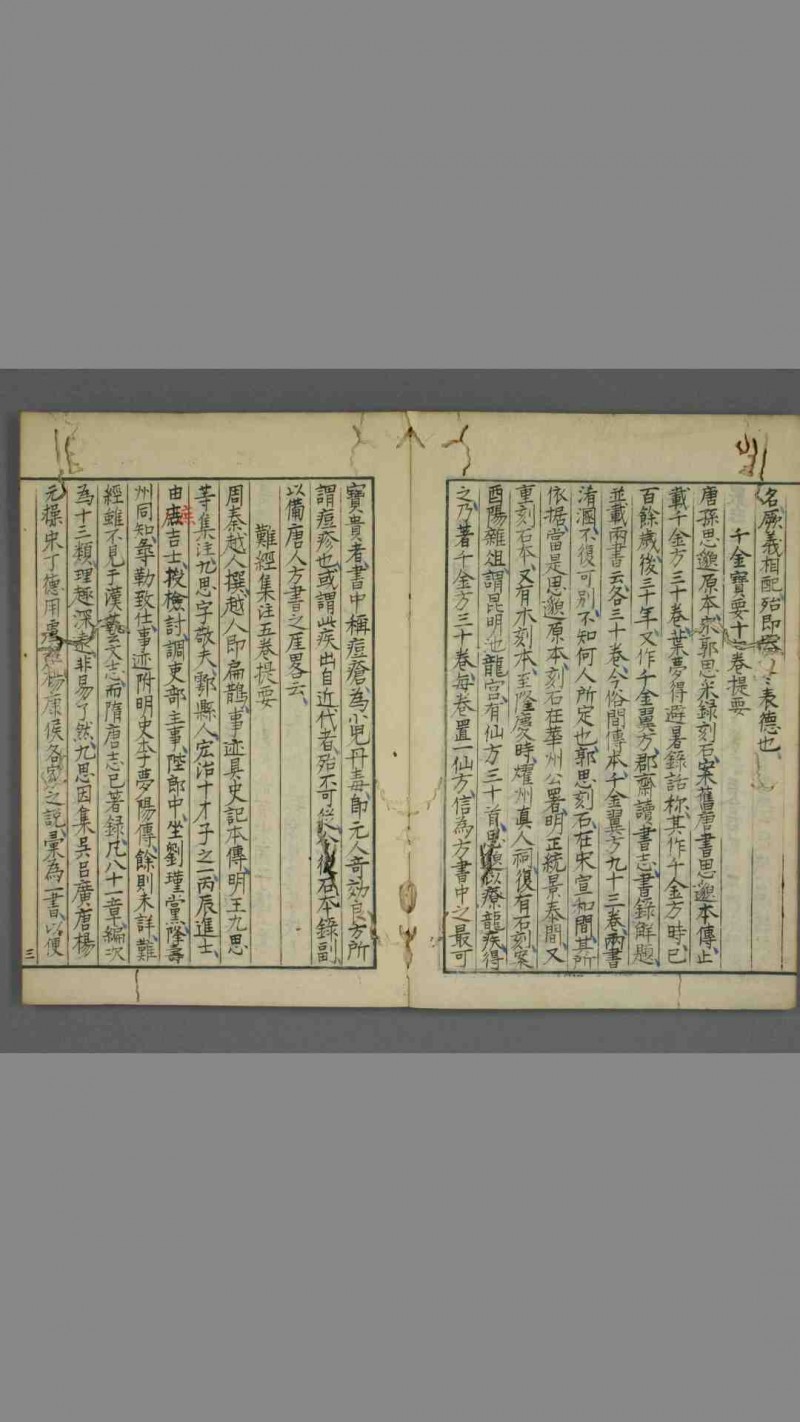 名厥義相配殆即表德也
千金寶要十卷提要
唐孫思邈原本宋郭思米錄刻石案舊唐書思邈本傳止
載千金方三十卷葉夢得避暑錄話称其作千金方時已
百餘歲後三十年又作千金翼方郡齋讀書志書錄解題
並載兩書云各三十卷今俗間傳本千金翼方九十三卷兩書
淆溷不復可別不知何人所定也郭思刻石在宋宣和間其所
依据當是思邈原本刻石在華州公署明正統景泰間又
重刻石本又有木刻本至隆慶時燿州真人祠復有石刻案
酉陽雜俎謂昆明池龍宮有仙方三十首思邈療龍疾得
之乃著千金方三十卷每卷置一仙方信為方書中之最可
寶貴者書中稱痘瘡為小兒丹毒即元人奇効良方所
謂痘疹也或謂此疾出自近代者殆不可從石本錄副
以備唐人方書之厓畧云
難經集注五卷提要
周秦越人撰越人即扁鵲事迹具史記本傳明王九思
等集注九思字敬夫鄠縣人宏治十才子之一丙辰進士
由庶吉士授檢討調吏部主事陞郎中坐劉瑾黨降壽
州同知尋勒致仕事迹附明史李夢陽傳餘則未詳難
經雖不見于漢藝文志而隋唐志已著錄凡八十一章編次
為十三類理趣深遠非易了然九思因集吳呂廣唐楊
元操宋丁德用虞楊康侯各家之說彙為一書以便
三